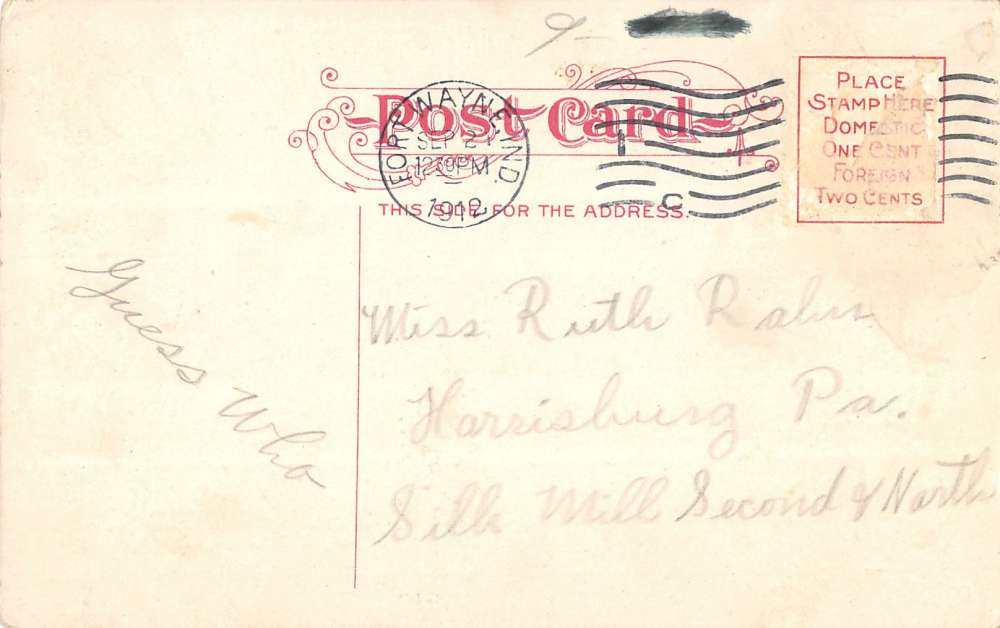 Post Card
FORT WAYNE, IND.
SEP 21
12 30 PM
1912
C
PLACE
STAMP HERE
DOMESTIC
ONE CENT
FOREIGN
TWO CENTS
THIS SIDE FOR THE ADDRESS.
Guess Who
Miss Ruth Rahn
Harrisburg Pa.
Silk Mill Second & North